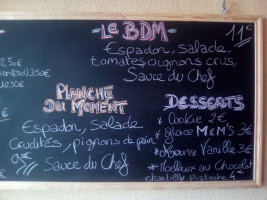 LE BDM
11€
Espadon, Salade,
tomates, oignons crus,
Sauce du Chef
2,50€
3,50€
0,50€
PLANCHE
DU MOMENT
Espadon, Salade
Crudités, pignons de pain
Sauce du Chef
DESSERTS
* Cookie 2€
* glace M&M's 3€
* Mousse Vanille 3€
* Moelleux au Chocolat
chantilly Pistache 4€